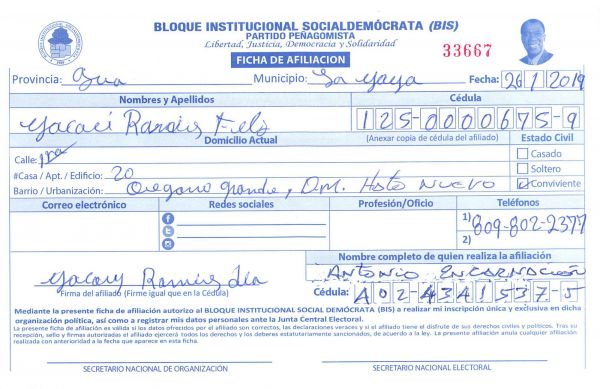 BLOQUE INSTITUCIONAL SOCIALDEMÓCRATA (BIS)
PARTIDO PEÑAGOMISTA
Libertad, Justicia, Democracia y Solidaridad
FICHA DE AFILIACION
33667
Provincia: Municipio: La Yaya Fecha: 26/1/2019
Nombres y Apellidos Cédula
Ramirs 125-0000675-9
Domicilio Actual (Anexar copia de cédula del afiliado) Estado Civil
Calle: 1ra Casado
#Casa / Apt. / Edificio: 20 Soltero
Barrio / Urbanización: Oregano grande, D.M. Hato Nuevo Conviviente
Correo electrónico Redes sociales Profesión/Oficio Teléfonos
1) 809-802-2377
2)
Nombre completo de quien realiza la afiliación
ANTONIO ENCARNACIÓN
Firma del afiliado (Firme igual que en la Cédula)
Cédula: A02-4341537-5
Mediante la presente ficha de afiliación autorizo al BLOQUE INSTITUCIONAL SOCIAL DEMÓCRATA (BIS) a realizar mi inscripción única y exclusiva en dicha
organización política, así como a registrar mis datos personales ante la Junta Central Electoral.
La presente ficha de afiliación es válida si los datos ofrecidos por el afiliado son correctos, las declaraciones veraces y si el afiliado tiene el disfrute de sus derechos civiles y políticos. Tras su
recepción, sello y firma autorizados el afiliado ejercerá todos los derechos y los deberes estatutariamente sancionados, de acuerdo a la ley. La presente afiliación anula cualquier afiliación
realizada con anterioridad a la fecha que aparece en esta ficha.
SECRETARIO NACIONAL DE ORGANIZACIÓN SECRETARIO NACIONAL ELECTORAL